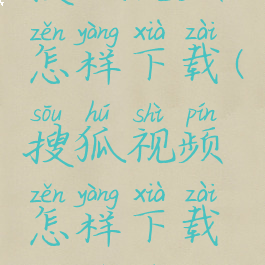 zěn yàng xià zài
怎样下载(
sōu hú shì pín
搜狐视频
zěn yàng xià zài
怎样下载